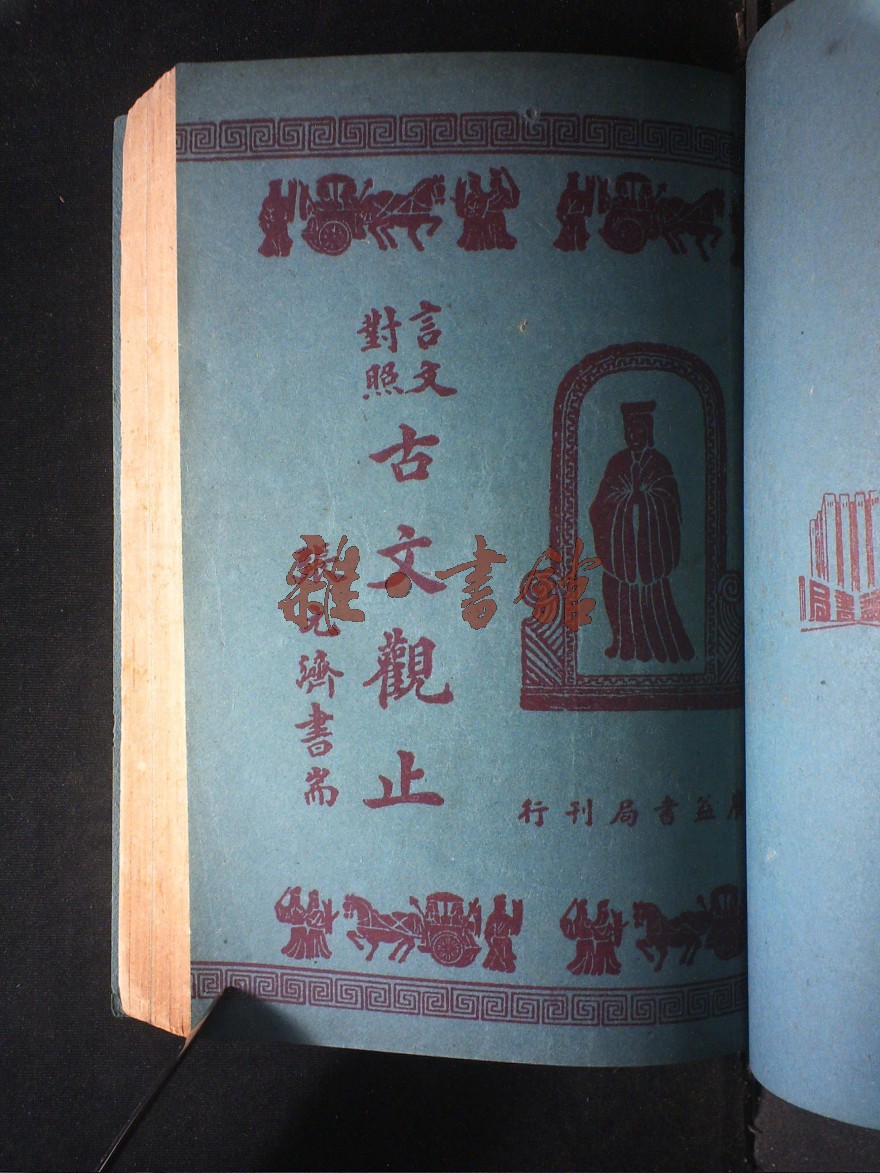 言文
對照
古文觀止
濟書耑
廣益書局刊行
雜·書館
益書局